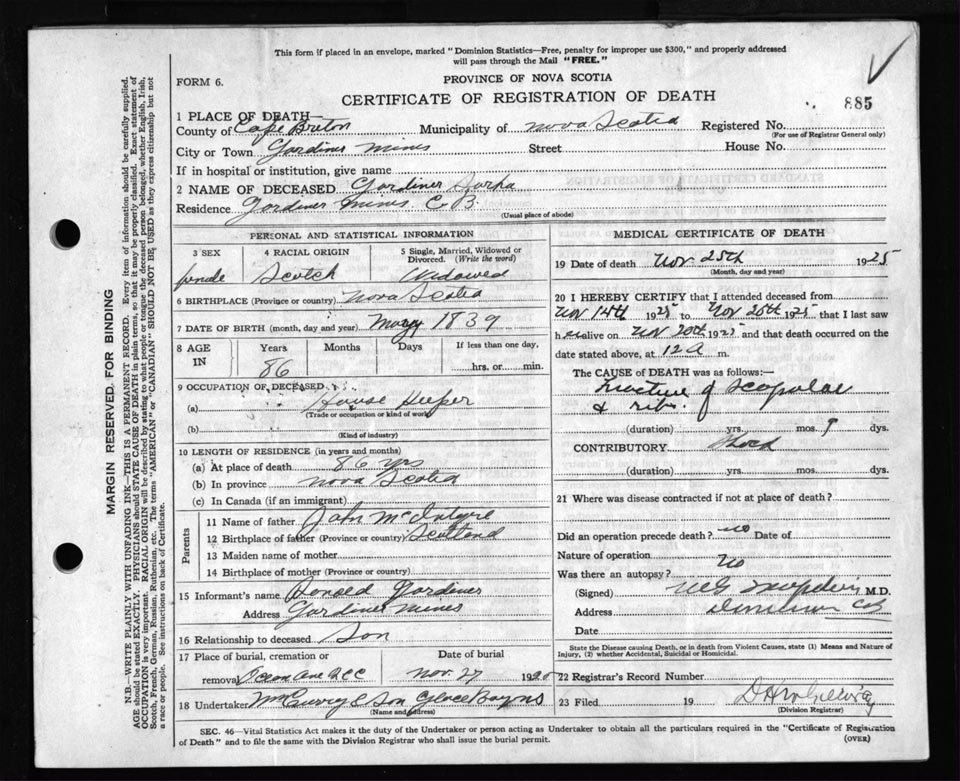 This form if placed in an envelope, marked "Dominion Statistics—Free, penalty for improper use $300," and properly addressed
will pass through the Mail "FREE."
FORM 6.
PROVINCE OF NOVA SCOTIA
CERTIFICATE OF REGISTRATION OF DEATH
885
1 PLACE OF DEATH—
County of Cape Breton Municipality of Nova Scotia Registered No.
(For use of Registrar General only)
City or Town Gardiner Mines Street House No.
If in hospital or institution, give name
2 NAME OF DECEASED Gardiner
Residence Gardiner Mines C.B.
(Usual place of abode)
PERSONAL AND STATISTICAL INFORMATION
3 SEX 4 RACIAL ORIGIN 5 Single, Married, Widowed or Divorced. (Write the word)
female Scotch Widowed
6 BIRTHPLACE (Province or country) Nova Scotia
7 DATE OF BIRTH (month, day and year) May 1839
8 AGE IN Years Months Days If less than one day,
86 hrs. or min.
9 OCCUPATION OF DECEASED
(a) House Keeper
(Trade or occupation or kind of work)
(b)
(Kind of industry)
10 LENGTH OF RESIDENCE (in years and months)
(a) At place of death 86 yrs
(b) In province Nova Scotia
(c) In Canada (if an immigrant)
Parents
11 Name of father John McIntyre
12 Birthplace of father (Province or country) Scotland
13 Maiden name of mother
14 Birthplace of mother (Province or country)
15 Informant's name Donald Gardiner
Address Gardiner Mines
16 Relationship to deceased Son
17 Place of burial, cremation or removal Date of burial
Nov. 27 192
18 Undertaker Son Glace Bay NS
(Name and address)
MEDICAL CERTIFICATE OF DEATH
19 Date of death Nov 25th 1925
(Month, day and year)
20 I HEREBY CERTIFY that I attended deceased from
Nov 14th 1925 to Nov 1925 that I last saw
h er alive on Nov 20th 1925 and that death occurred on
date stated above, at 12 A m.
The CAUSE of DEATH was as follows:—
Fracture of Scapular
& ribs.
(duration) yrs. mos. 9 dys.
CONTRIBUTORY Shock
(duration) yrs. mos. dys.
21 Where was disease contracted if not at place of death?
Did an operation precede death? no Date of
Nature of operation
Was there an autopsy? No
(Signed) M.D.
Address Dominion CB
Date
State the Disease causing Death, or in death from Violent Causes, state (1) Means and Nature of
Injury, (2) whether Accidental, Suicidal or Homicidal.
22 Registrar's Record Number
23 Filed 19
(Division Registrar)
SEC. 46—Vital Statistics Act makes it the duty of the Undertaker or person acting as Undertaker to obtain all the particulars required in the "Certificate of Registration
of Death" and to file the same with the Division Registrar who shall issue the burial permit. (OVER)
MARGIN RESERVED FOR BINDING
N.B.—WRITE PLAINLY WITH UNFADING INK—THIS IS A PERMANENT RECORD. Every item of information should be carefully supplied.
AGE should be stated EXACTLY. PHYSICIANS should STATE CAUSE OF DEATH in plain terms, so that it may be properly classified. Exact statement of
OCCUPATION is very important. RACIAL ORIGIN will be described by stating to what people or tongue the deceased person belonged, whether English, Irish,
Scotch, French, German, Russian, Ruthenian, etc. The terms "AMERICAN" or "CANADIAN" SHOULD NOT BE USED as they express citizenship but not
a race or people. See instructions on back of Certificate.